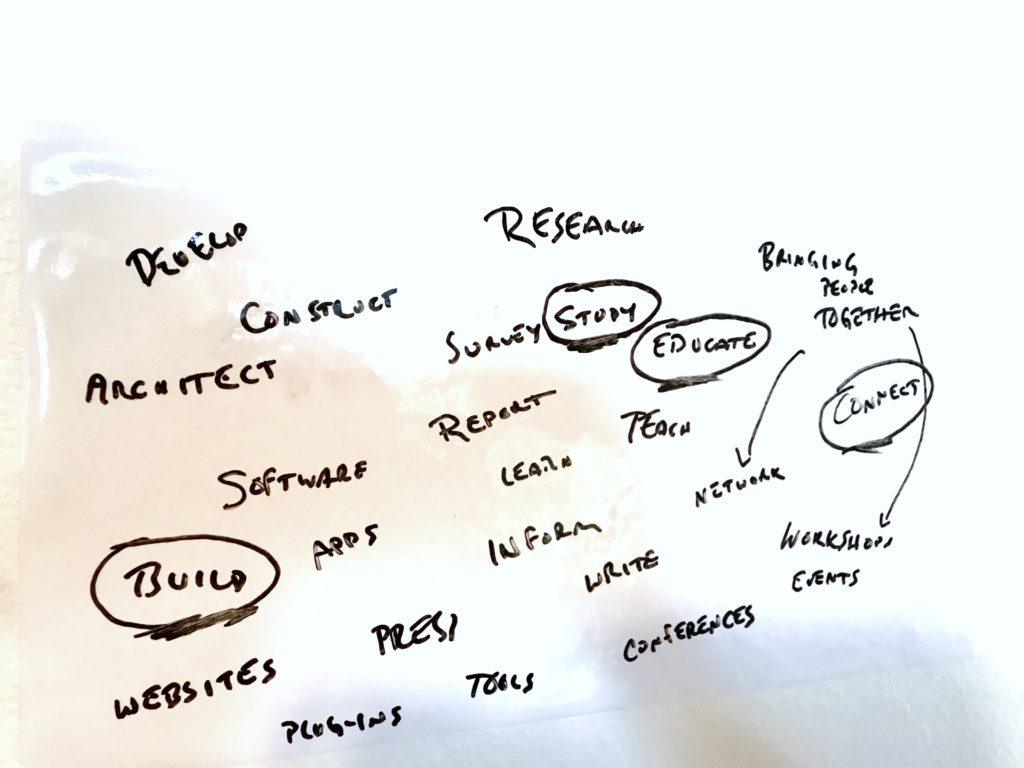 DEVELOP
RESEARCH
BRINGING
PEOPLE
TOGETHER
CONSTRUCT
SURVEY
STUDY
EDUCATE
ARCHITECT
CONNECT
REPORT
TEACH
SOFTWARE
LEARN
NETWORK
APPS
INFORM
WORKSHOPS
BUILD
WRITE
EVENTS
CONFERENCES
WEBSITES
TOOLS
PLUG-INS